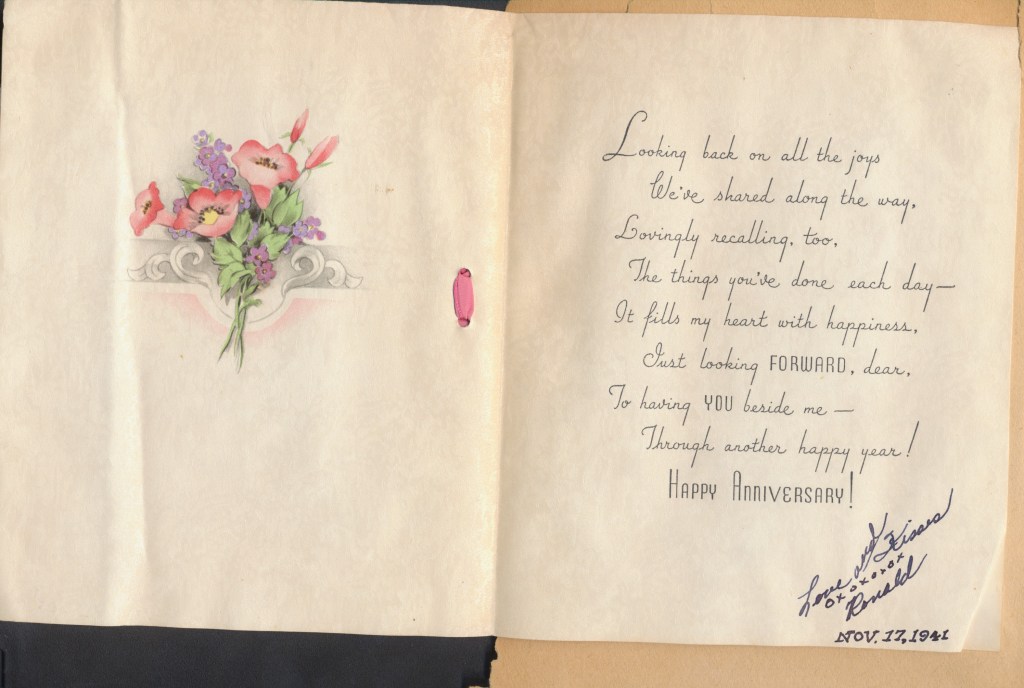 Looking back on all the joys
We've shared along the way,
Lovingly recalling, too,
The things you've done each day—
It fills my heart with happiness,
Just looking FORWARD, dear,
To having YOU beside me —
Through another happy year!
HAPPY ANNIVERSARY!
Love and Kisses
oxoxoxox
Ronald
NOV. 17, 1941